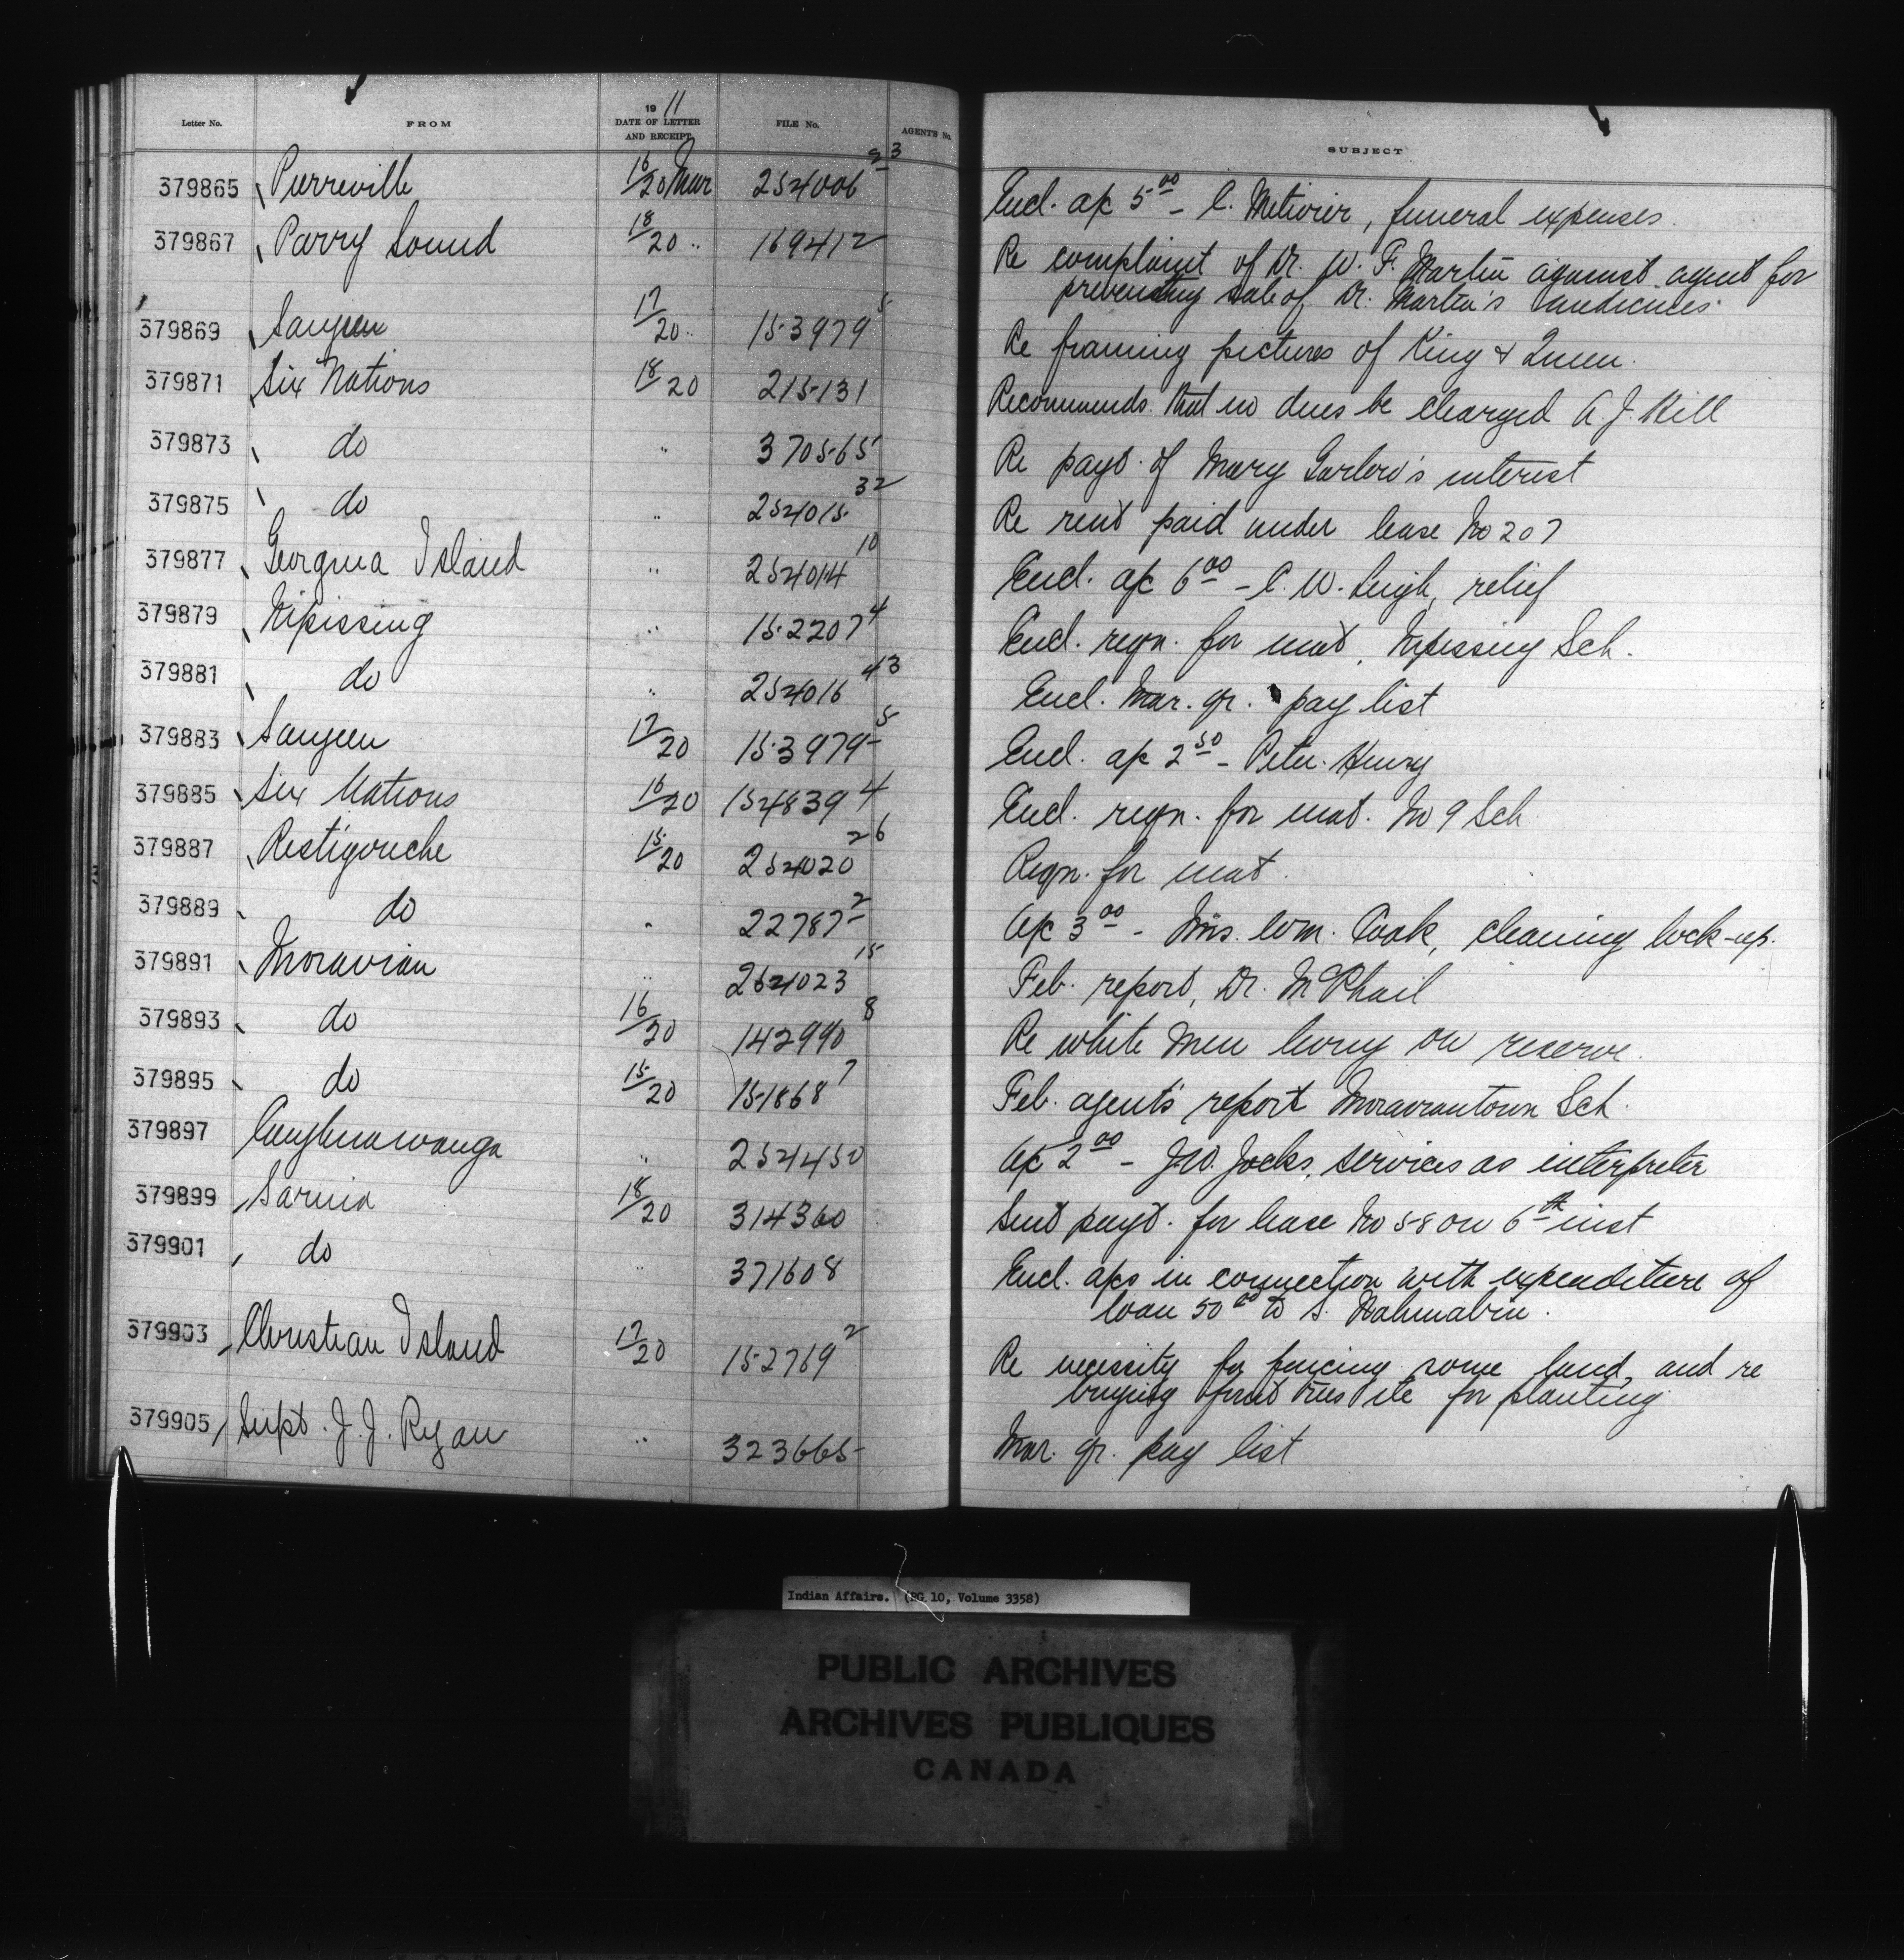 Letter No. FROM 1911 DATE OF LETTER AND RECEIPT FILE No. AGENT'S No. SUBJECT
379865 Pierreville 16/20 Mar 254006 23 Encl. a/c 5.00 - C. Metivier, funeral expenses.
379867 Parry Sound 18/20 " 169412 Re complaint of Dr. W. F. Martin against agent for
preventing sale of Dr. Martin's medicines.
379869 Saugeen 17/20 " 153979 5 Re framing pictures of King & Queen.
379871 Six Nations 18/20 215131 Recommends that no dues be charged A. J. Hill
379873 do " 370565 Re payt. of Mary Garlow's interest
379875 do " 254015 32 Re rent paid under lease No 207
379877 Georgina Island " 254014 10 Encl. a/c 6.00 - C. W. Leigh, relief
379879 Nipissing " 152207 4 Encl. reqn. for mat, Nipissing Sch.
379881 do " 254016 43 Encl. Mar. qr. pay list
379883 Saugeen 17/20 153979 5 Encl. a/c 2.50 - Peter Henry
379885 Six Nations 16/20 154839 4 Encl. reqn. for mat. No 9 Sch
379887 Restigouche 15/20 254020 26 Reqn. for mat.
379889 do " 22787 2 A/c 3.00 - Mrs. Wm. Cook, cleaning lock-up.
379891 Moravian " 254023 15 Feb. report, Dr. McPhail
379893 do 16/20 142990 8 Re white men living on reserve.
379895 do 15/20 151868 7 Feb. agent's report Moraviantown Sch.
379897 Caughnawauga " 254450 A/c 2.00 - J.W. Jocks, services as interpreter
379899 Sarnia 18/20 314360 Sent payt. for lease No 58 on 6th inst
379901 do " 371608 Encl. a/cs in connection with expenditure of
loan 50.00 to S. Wahmabin.
379903 Christian Island 17/20 152769 2 Re necessity for fencing some land, and re
buying fruit trees etc for planting
379905 Supt. J. J. Ryan " 323665 Mar. qr. pay list
Indian Affairs. (RG 10, Volume 3358)
PUBLIC ARCHIVES
ARCHIVES PUBLIQUES
CANADA